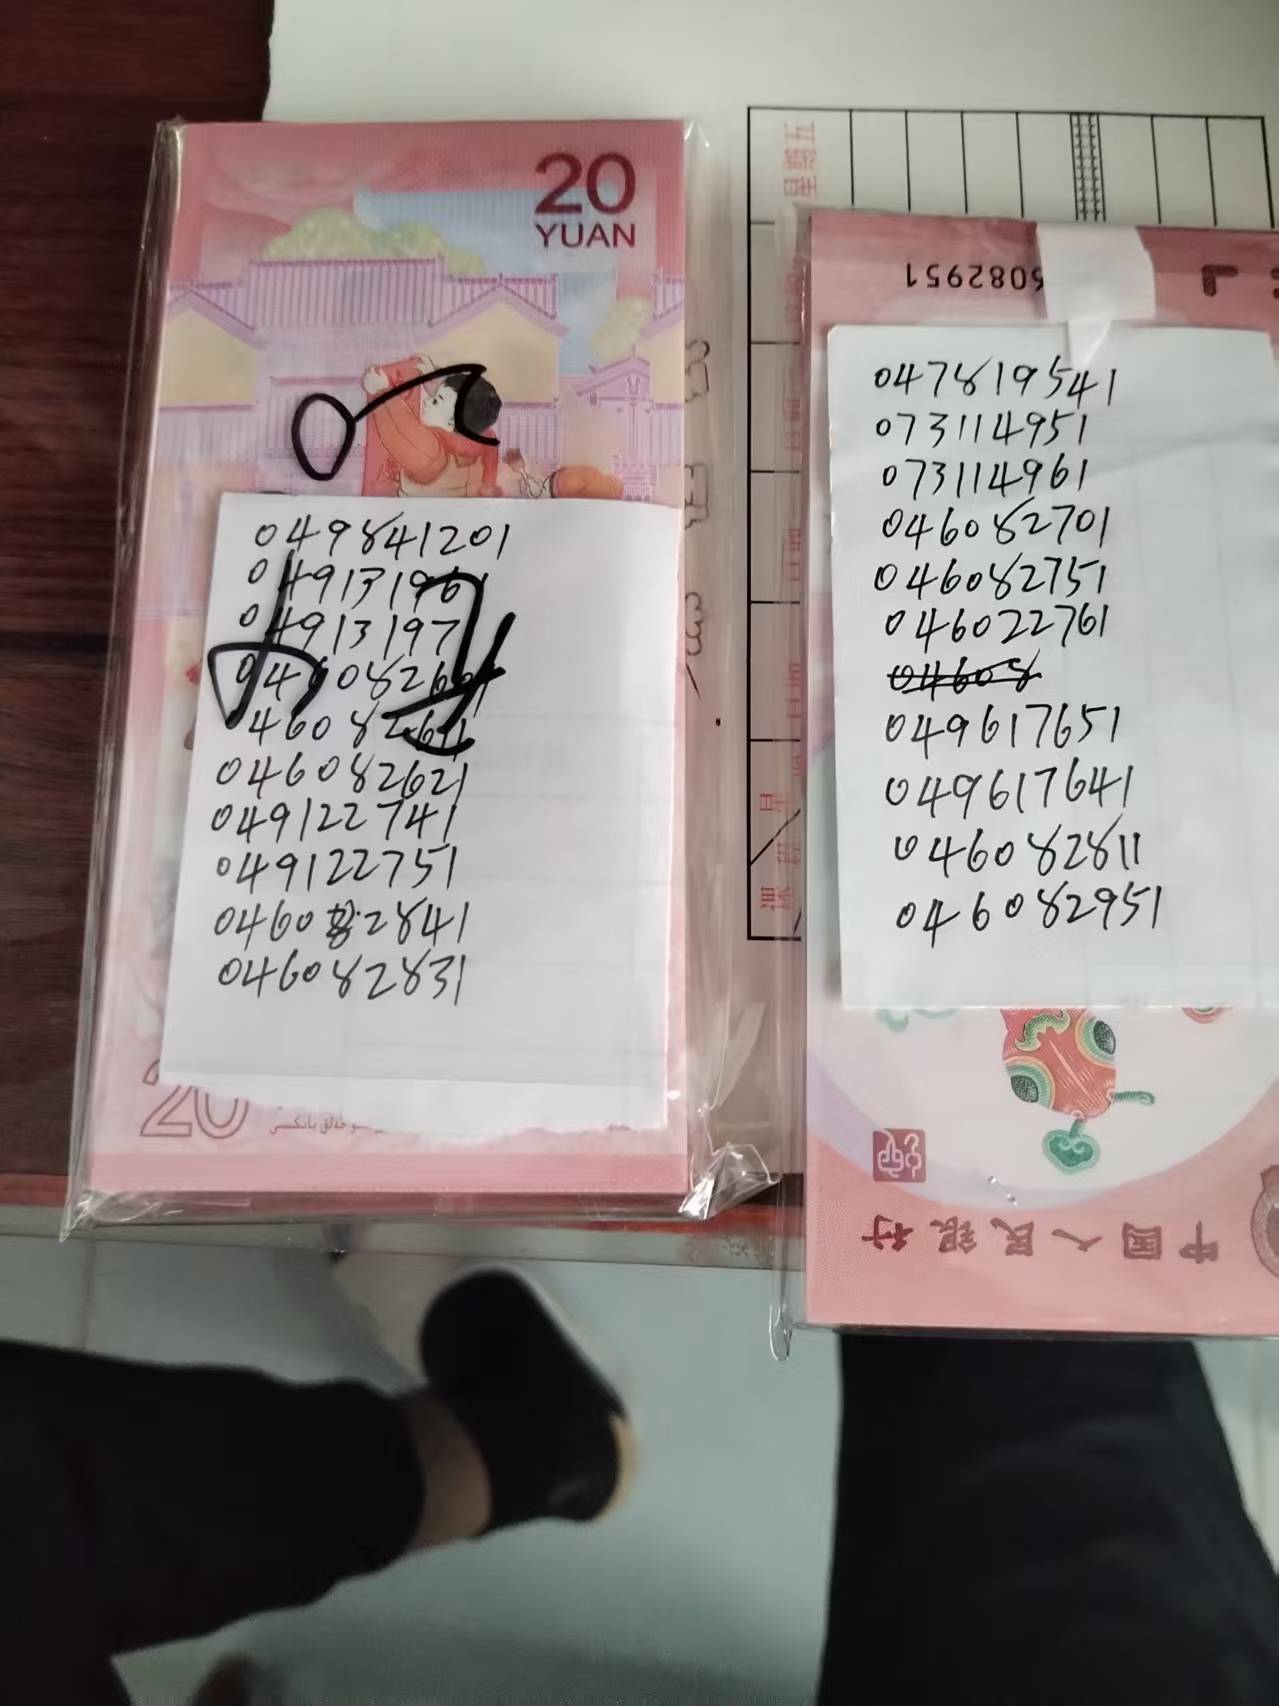 20
YUAN
049841201
049131961
049131971
046082621
049122741
049122751
046082841
046082831
20
星期五
6082951
047819541
073114951
073114961
046082701
046082751
046022761
04608
049617651
049617641
046082811
046082951
中国人民银行